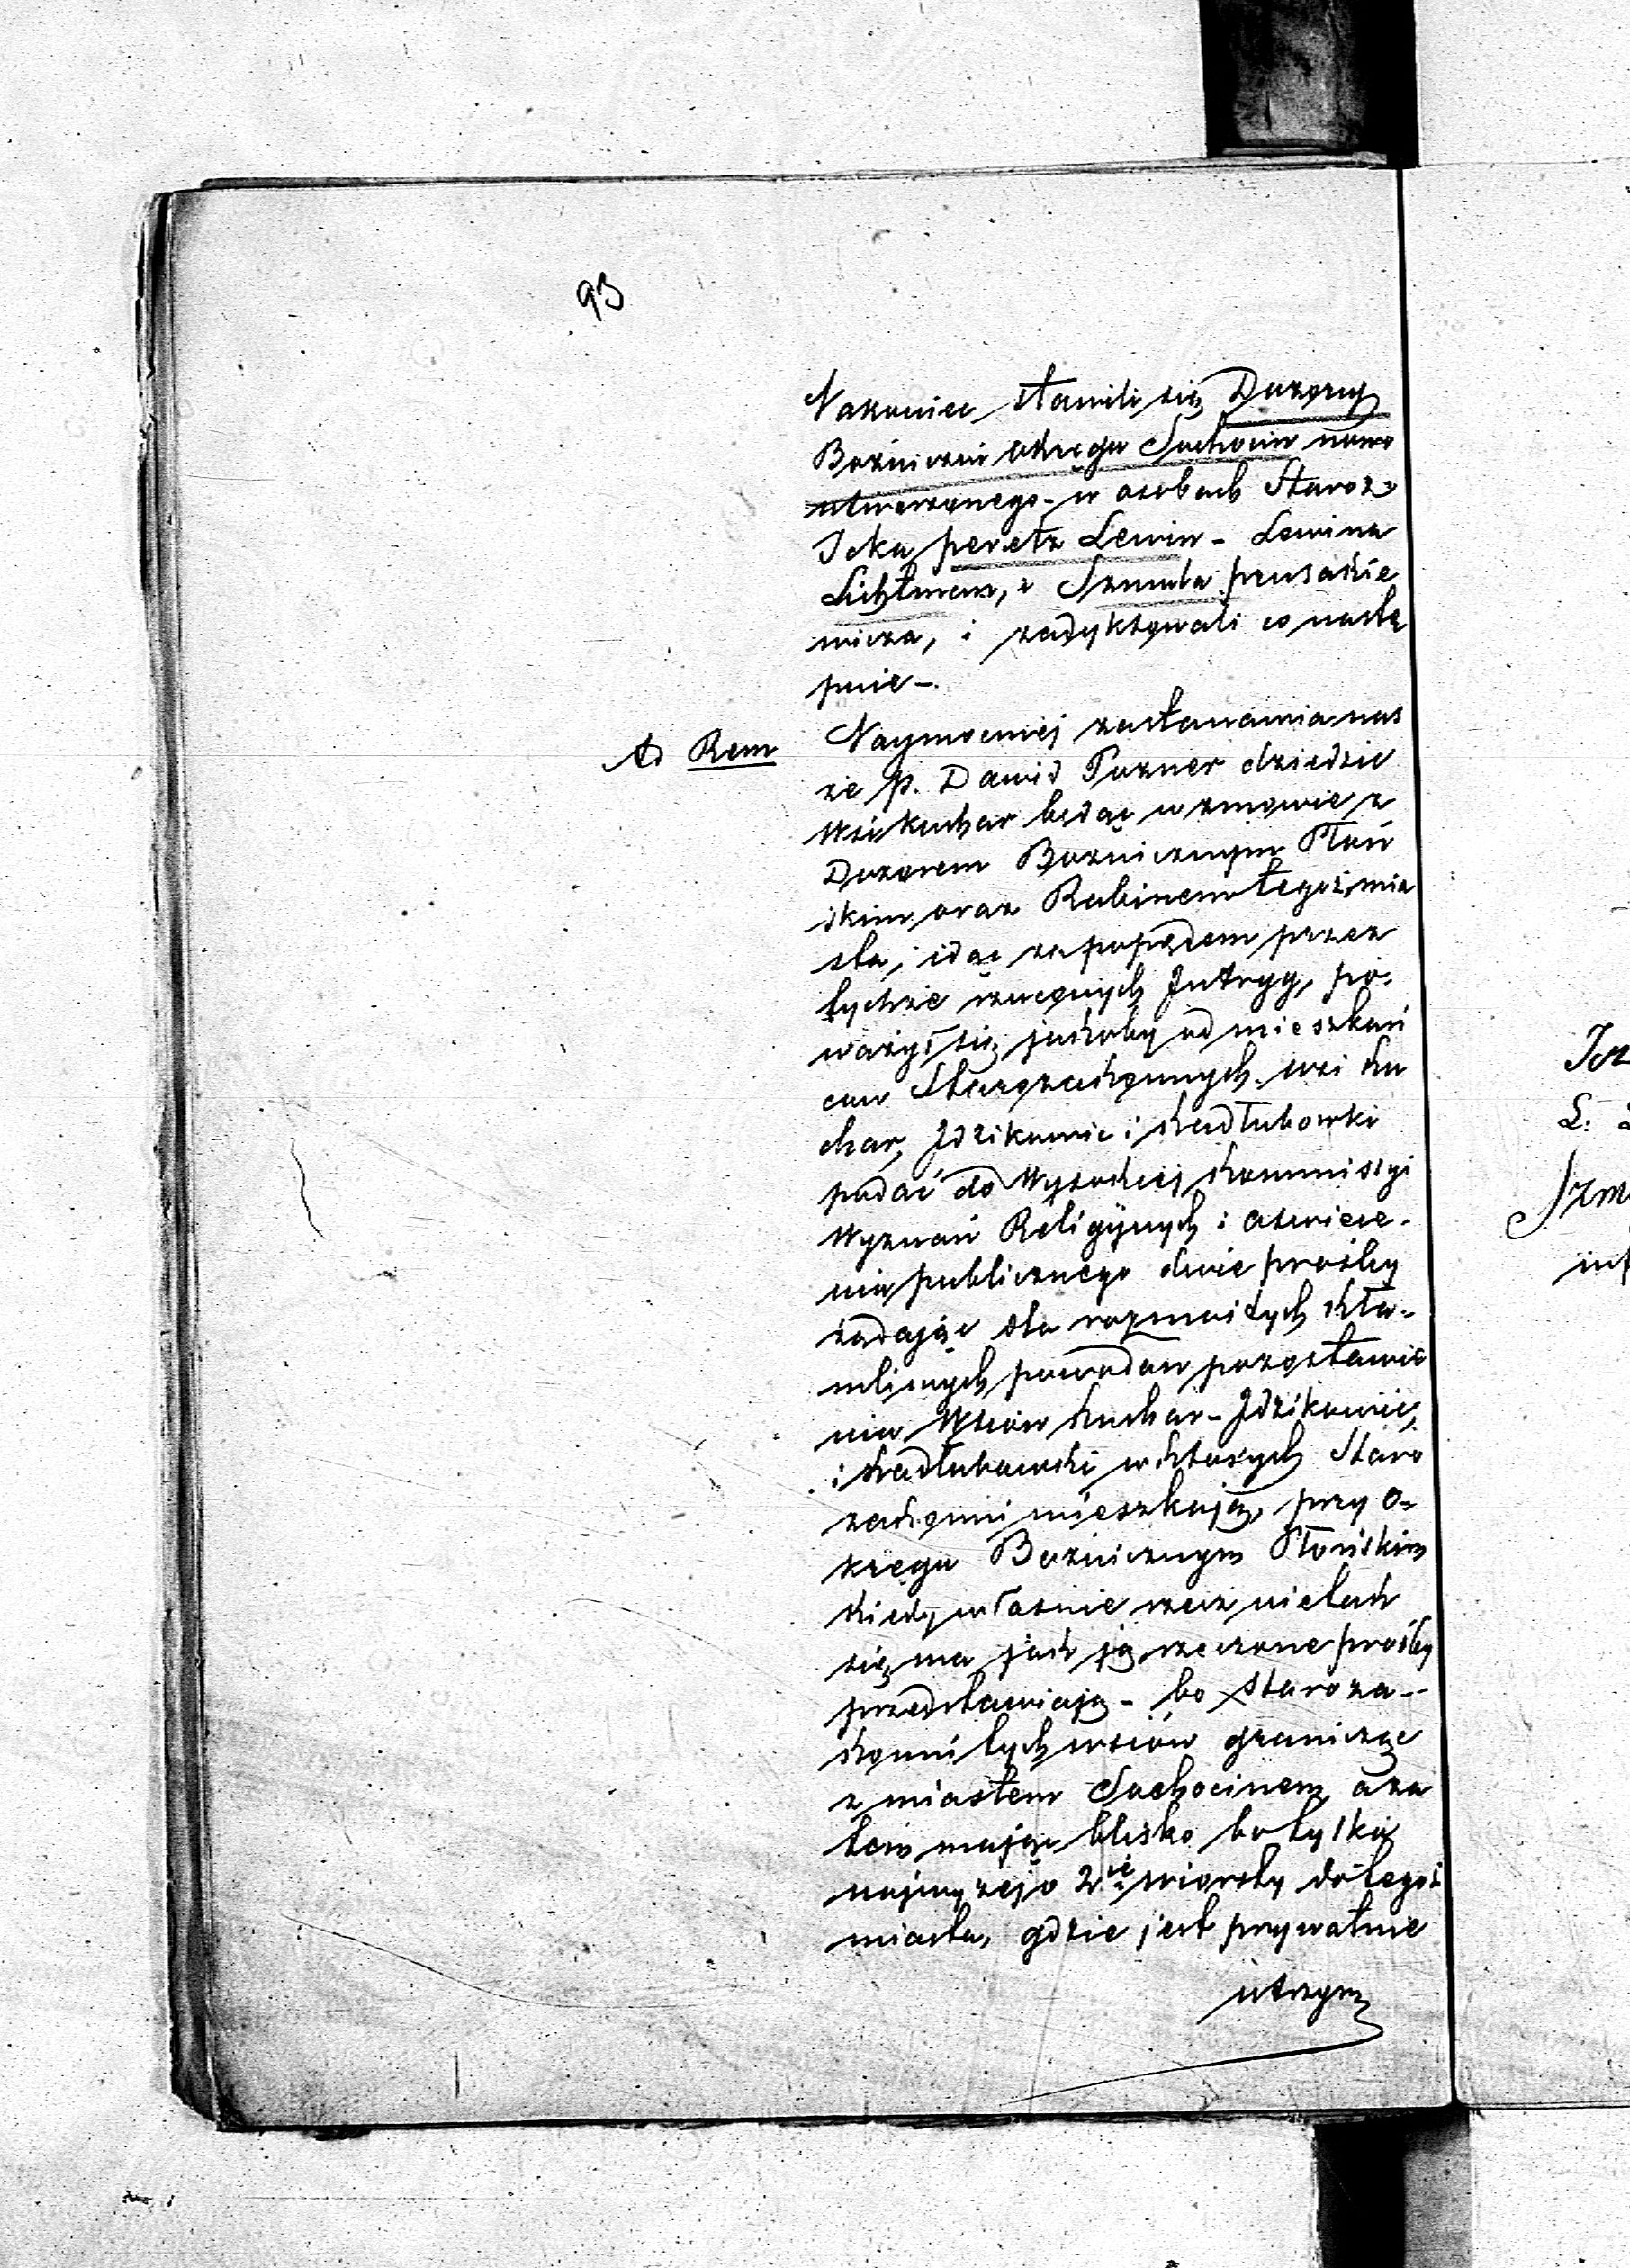 93
Nakoniec stawili się Dozory
Bożniczni okręgu Sochocin nowo
utworzonego - w osobach Staroz:
Icka peretz Lewin - Lewina
Lichtman, i Szmula prusakie
wicza, i zadyktowali co nastę
pnie -.
Ad Rem
Naymocniej zastanawia nas
że p. Dawid Pozner dziedzic
Wsi Kuchar będąc w zmowie z
Dozorem Bożnicznym Płoń
skim oraz Rabinem tegoż mia
sta, idąc za popędem przez
tychże rzuconych Intryg, po-
ważył się jakoby od mieszkań
ców Starozakonnych wsi Ku
char, Idzikowic i Kadłubowki
podać do Wysokiej Kommissyi
Wyznań Religijnych i Oswiece-
nia publicznego dwie prosby
żądając dla rozmaitych kła-
mliwych powodow pozostawie
nia Wsiow Kuchar - Idzikowic,
i Kadłubowki w ktorych Staro
zakonni mieszkają, przy O-
kręgu Bożnicznym Płońskim
kiedy własnie rzecz nie tak
się ma jak ją rzeczone prosby
przedstawiają - bo Staroza-
konni tych wsiow granicząc
z miastem Sochocinem, a za
tem mając blisko bo tylko
najwyzej o 2ie wiorsty do tegoż
miasta, gdzie jest prywatnie
utrzym
Icz
L:
Szm